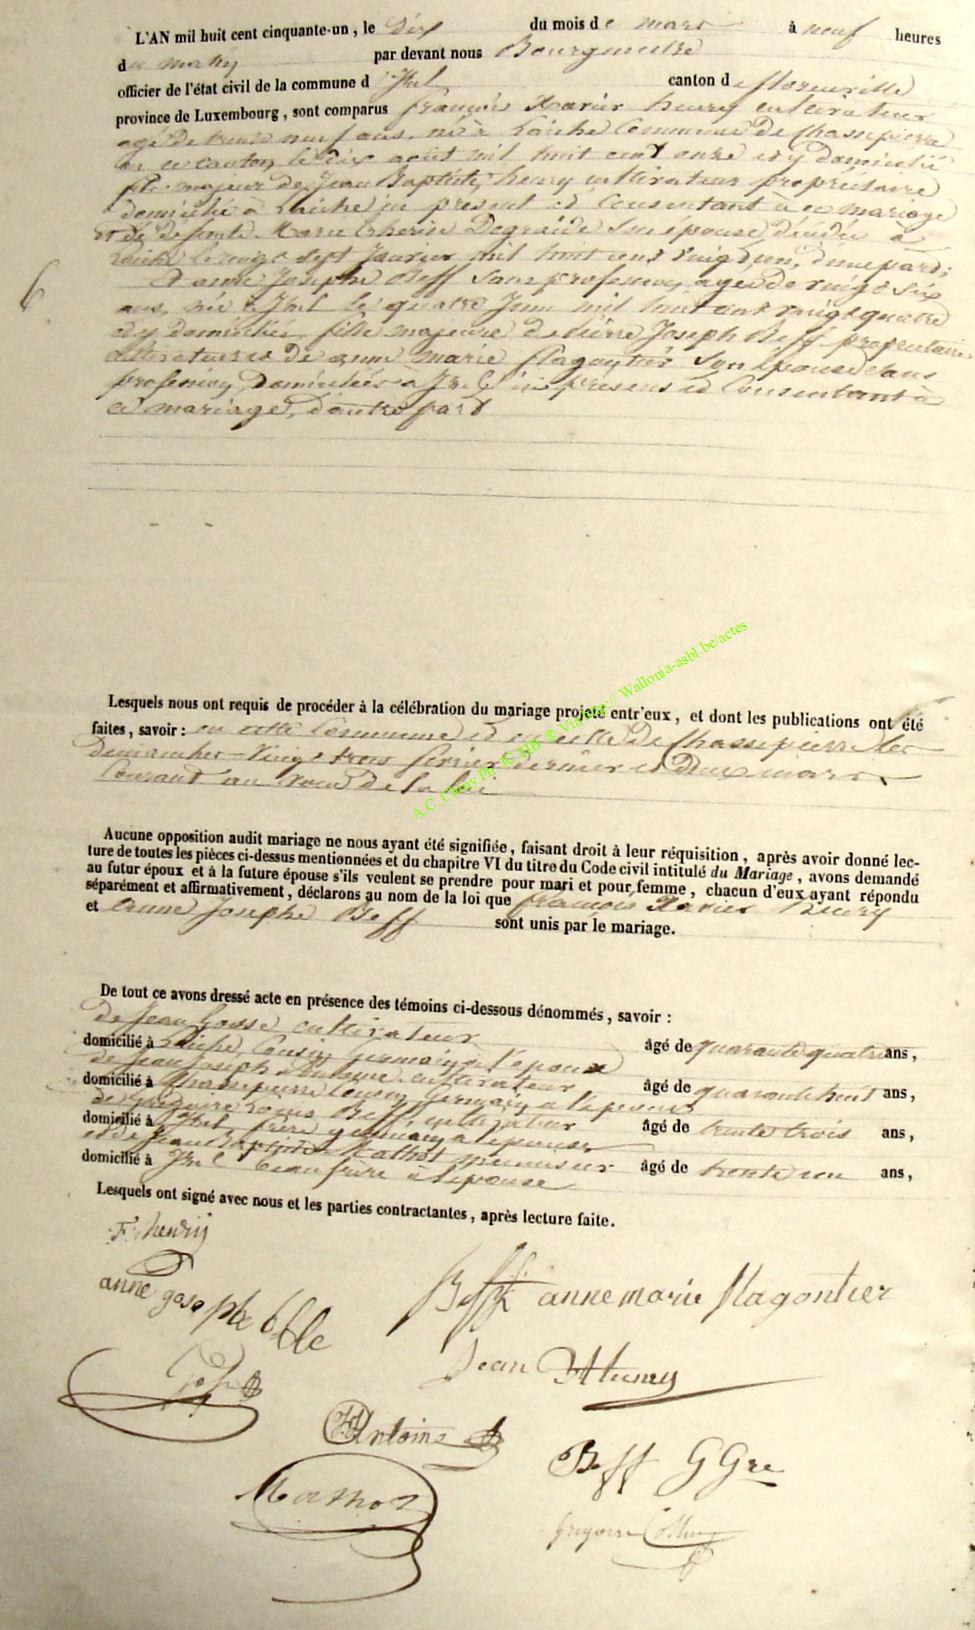 L'AN mil huit cent cinquante-un, le dix du mois de mars à neuf heures
du matin par devant nous Bourgmestre
officier de l'état civil de la commune d'Izel canton de florenville
province de Luxembourg, sont comparus françois Xavier henry cultivateur
agé de trente neuf ans, né à Laiche Commune de Chassepierre
en ce canton le dix août mil huit cent onze et y domicilié
fils majeur de Jean Baptiste henry cultivateur propriétaire
domicilié à Laiche ici présent et Consentant à ce mariage
et de défunte Marie thérèse Degraide Son épouse, décédée à
Laiche le vingt sept Janvier mil huit cent vingt un, d'une part;
Et anne Josephe Beff Sans profession, agée de vingt Six
ans, née à Izel le quatre Juin mil huit cent vingt quatre
et y domiciliée, fille majeure de Pierre Joseph Beff propriétaire
cultivateur et de anne marie flagontier Son épouse Sans
profession, Domiciliés à Izel, ici présens et Consentant à
ce mariage, d'autre part
6
Lesquels nous ont requis de procéder à la célébration du mariage projeté entr'eux, et dont les publications ont été
faites, savoir : en cette Commune et en celle de Chassepierre les
Dimanches Vingt trois février dernier et Deux mars
Courant au Voeu de la loi
A.C. Chiny Ph. ICMB © Via http// Wallonia-asbl.be/actes
Aucune opposition audit mariage ne nous ayant été signifiée, faisant droit à leur réquisition, après avoir donné lec-
ture de toutes les pièces ci-dessus mentionnées et du chapitre VI du titre du Code civil intitulé du Mariage, avons demandé
au futur époux et à la future épouse s'ils veulent se prendre pour mari et pour femme, chacun d'eux ayant répondu
séparément et affirmativement, déclarons au nom de la loi que françois Xavier henry
et Anne Josephe Beff sont unis par le mariage.
De tout ce avons dressé acte en présence des témoins ci-dessous dénommés, savoir :
de Jean Gosse cultivateur
domicilié à Laiche, Cousin germain à l'époux âgé de quarante quatre ans,
de Jean Joseph Antoine cultivateur
domicilié à Chassepierre Cousin germain à l'époux âgé de quarante huit ans,
de Grégoire Beff cultivateur
domicilié à Izel frère germain à l'épouse âgé de trente trois ans,
et de Jean Baptiste Mathot menuisier
domicilié à Izel beau frère à l'épouse âgé de trente un ans,
Lesquels ont signé avec nous et les parties contractantes, après lecture faite.
F. henry
anne gosephe
Beff anne marie flagontier
Jean Henry
Antoine
Beff GGre
Mathot